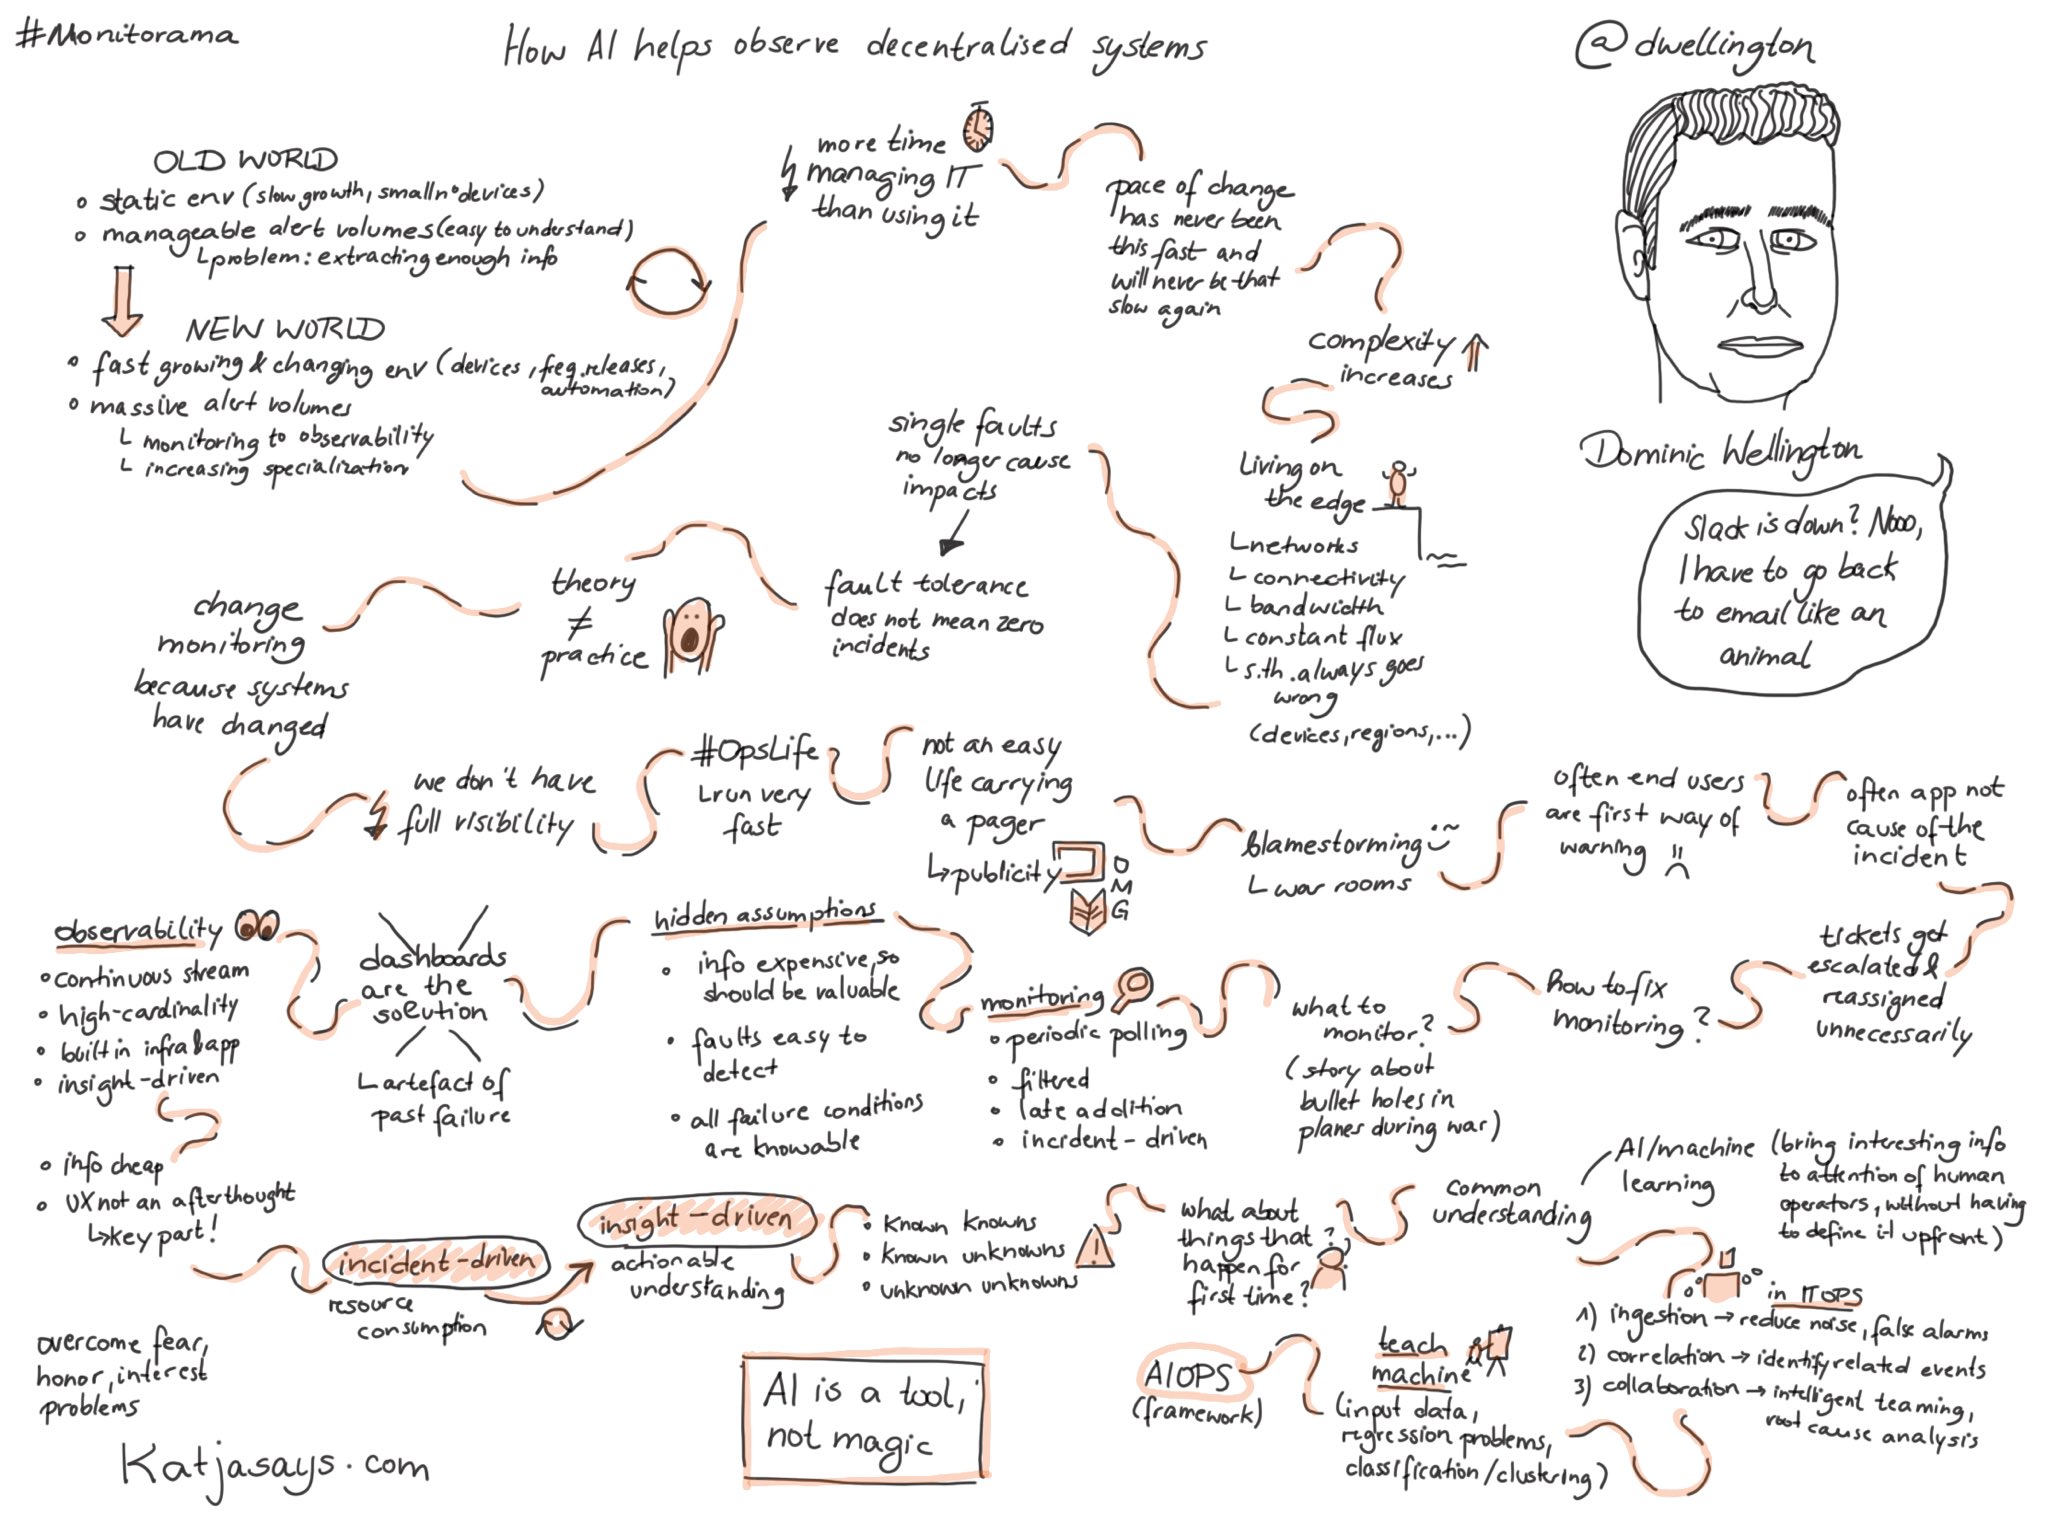 #Monitorama
How AI helps observe decentralised systems
@dwellington
OLD WORLD
static env (slow growth, small n° devices)
manageable alert volumes (easy to understand)
└ problem: extracting enough info
NEW WORLD
fast growing & changing env (devices, freq. releases,
automation)
massive alert volumes
└ monitoring to observability
└ increasing specialization
more time
managing IT
than using it
pace of change
has never been
this fast and
will never be that
slow again
complexity
increases
Living on
the edge
└ networks
└ connectivity
└ bandwidth
└ constant flux
└ s.th. always goes
wrong
(devices, regions, ...)
single faults
no longer cause
impacts
fault tolerance
does not mean zero
incidents
theory
≠
practice
change
monitoring
because systems
have changed
Dominic Wellington
Slack is down? Nooo,
I have to go back
to email like an
animal
we don't have
full visibility
#OpsLife
└ run very
fast
not an easy
life carrying
a pager
↳ publicity
OMG
blamestorming
└ war rooms
often end users
are first way of
warning
often app not
cause of the
incident
tickets get
escalated &
reassigned
unnecessarily
how to fix
monitoring?
what to
monitor?
(story about
bullet holes in
planes during war)
monitoring
periodic polling
filtered
late addition
incident-driven
hidden assumptions
info expensive, so
should be valuable
faults easy to
detect
all failure conditions
are knowable
dashboards
are the
solution
└ artefact of
past failure
observability
continuous stream
high-cardinality
built in infra & app
insight-driven
info cheap
UX not an afterthought
↳ key part!
incident-driven
resource
consumption
insight-driven
actionable
understanding
known knowns
known unknowns
unknown unknowns
!
what about
things that
happen for
first time?
?
common
understanding
AI/machine
learning
(bring interesting info
to attention of human
operators, without having
to define it upfront)
in IT OPS
1) ingestion → reduce noise, false alarms
2) correlation → identify related events
3) collaboration → intelligent teaming,
root cause analysis
teach
machine
(input data,
regression problems,
classification/clustering)
AIOPS
(framework)
AI is a tool,
not magic
overcome fear,
honor, interest
problems
Katjasays.com